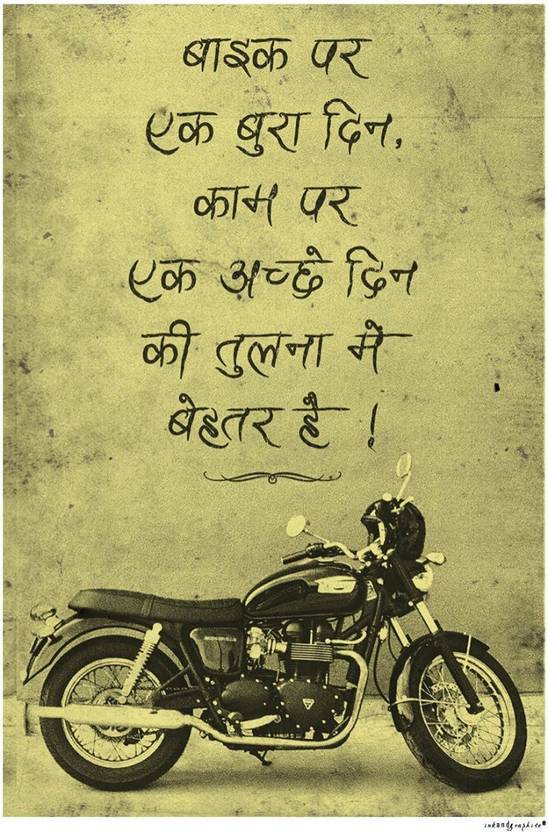 बाइक पर
एक बुरा दिन,
काम पर
एक अच्छे दिन
की तुलना मे
बेहतर है !
inkandgraphics